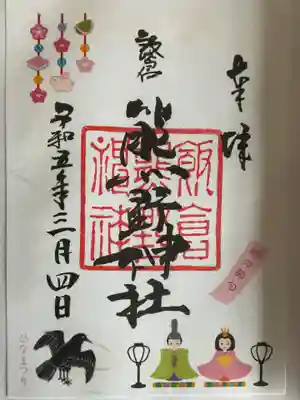 奉拝
飯倉
熊野神社
飯倉
熊野
神社
令和五年三月四日
ひなまつり